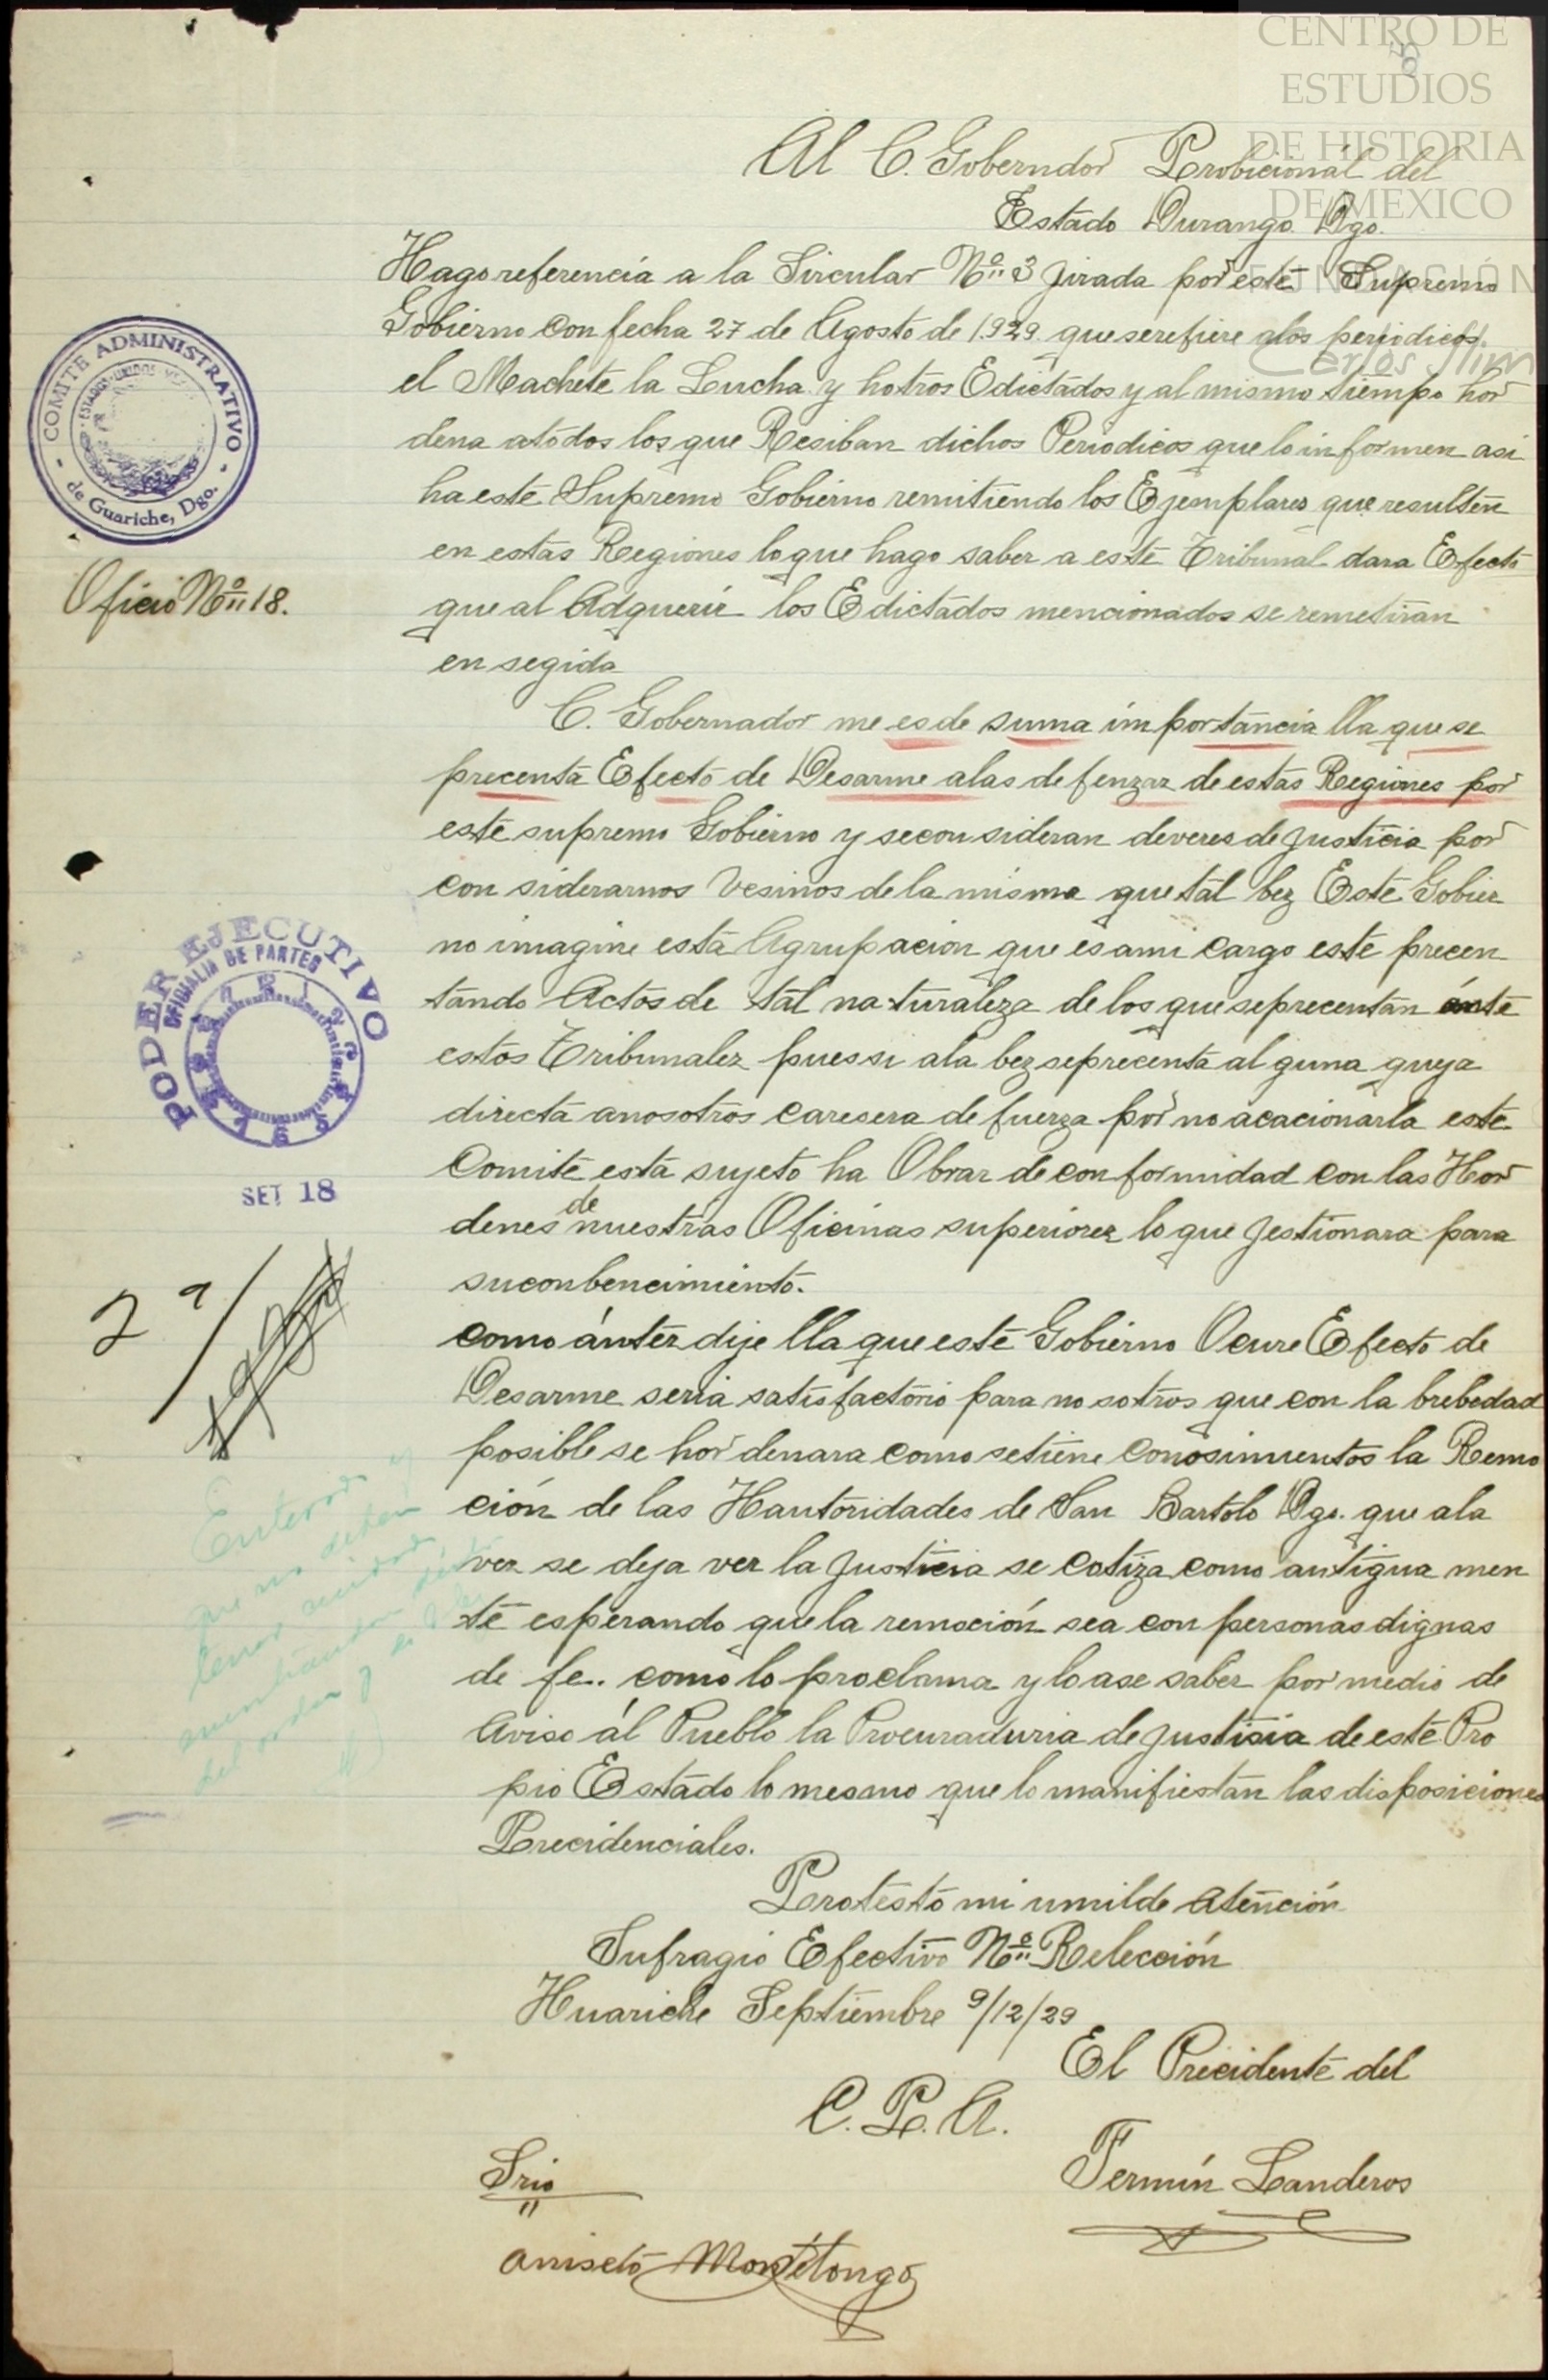 CENTRO DE
ESTUDIOS
DE HISTORIA
DE MEXICO
FUNDACIÓN
Carlos Slim
Al C. Goberndor Probicional del
Estado Durango Dgo.
Hago referencia a la Sircular No. 3 jirada por este Supremo
Gobierno con fecha 27 de Agosto de 1.929. que serefiere alos periodicos.
el Machete la Lucha y hotros Edictados y al mismo tiempo hor
dena atodos los que Resiban dichos Periodicos que lo informen asi
ha este Supremo Gobierno remitiendo los Ejemplares que resulten
en estas Regiones lo que hago saber a este Tribunal dara Efecto
que al Adquerir los Edictados mencionados se remetiran
en segida
C. Gobernador me es de suma importancia lla que se
precenta Efecto de Desarme alas defenzaz de estas Regiones por
este supremo Gobierno y seconsideran deveres de justicia por
con siderarnos Vesinos de la misma que tal bez Este Gobier
no imagine esta Agrupacion que es ami cargo este precen
tando Actos de tal naturaleza de los que seprecentan ante
estos Tribunalez pues si ala bez seprecenta alguna queja
directa anosotros caresera de fuerza por no acacionarla este
Comite esta sujeto ha Obrar de conformidad con las Hor
denes de nuestras Oficinas superiorez lo que jestionara para
suconbencimiento.
como ántez dije lla que este Gobierno Ocure Efecto de
Desarme seria satisfactorio para nosotros que con la brebedad
posible se hordenara como setiene Conosimientos la Remo
ción de las Hautoridades de San Bartolo Dgo. que ala
vez se deja ver la justicia se cotiza como antigua men
te esperando que la remoción sea con personas dignas
de fe.. como lo proclama y lo ase saber por medio de
Aviso ál Pueblo la Procuraduria de justisia de este Pro
pio Estado lo mesmo que lo manifiestan las disposiciones
Precidenciales.
Protesto mi umilde Atención
Sufragio Efectivo No. Relección
Huariche Septiembre 9/12/29
El Precidente del
C. P. A.
Fermín Landeros
Srio
Aniseto Montelongo
COMITE ADMINISTRATIVO
ESTADOS UNIDOS
de Guariche, Dgo.
Oficio No. 18.
PODER EJECUTIVO
OFICIALIA DE PARTES
SET 18
2a/
Enterado y
que no deben
tener cuidado